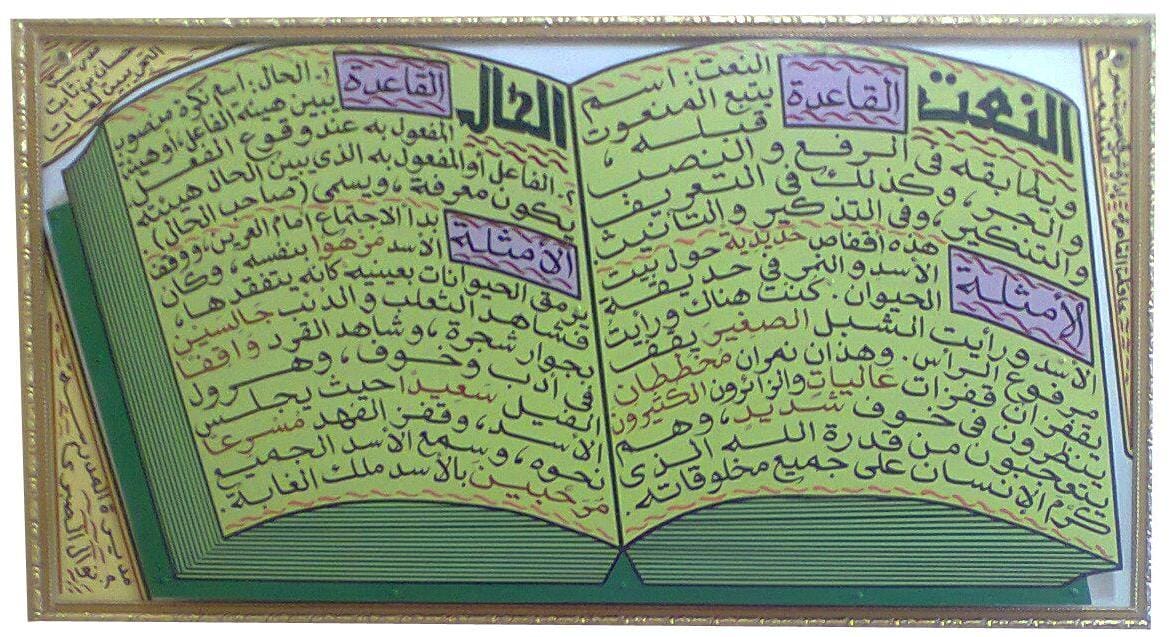 النعت
القاعدة
النعت: اسم
يتبع المنعوت
قبله،
ويطابقه فى الرفع و النصب
والجر، وكذلك فى التعريف
والتنكير، وفى التذكير والتأنيث
الأمثلة
هذه أقفاص حديدية حول بيت
الأسد والنمر فى حديقة
الحيوان. كنت هناك ورأيت
الأسد ورأيت الشبل الصغير يقف
مرفوع الرأس. وهذان نمران مخططان
يقفزان قفزات عاليات والزائرون الكثيرون
ينظرون فى خوف شديد، وهم
يتعجبون من قدرة الله الذى
كرم الإنسان على جميع مخلوقاته.
الحال
القاعدة
١- الحال: اسم نكرة منصوب
يبين هيئة الفاعل أو هيئة
المفعول به عند وقوع الفعل
٢- الفاعل أو المفعول به الذى يبين الحال هيئته
يكون معرفة، ويسمى (صاحب الحال)
الأمثلة
بدأ الاجتماع أمام العرين، ووقف
الأسد مزهوا بنفسه، وكان
يرمق الحيوانات بعينيه كأنه يتفقدها،
فشاهد الثعلب والذئب جالسين
بجوار شجرة، وشاهد القرد واقفا
فى أدب وخوف، وهرول
الفيل سعيدا حيث يجلس
الأسد، وقفز الفهد مسرعا
نحوه، وسمع الأسد الجميع
مرحبين بالأسد ملك الغابة.
مديرة المدرسة